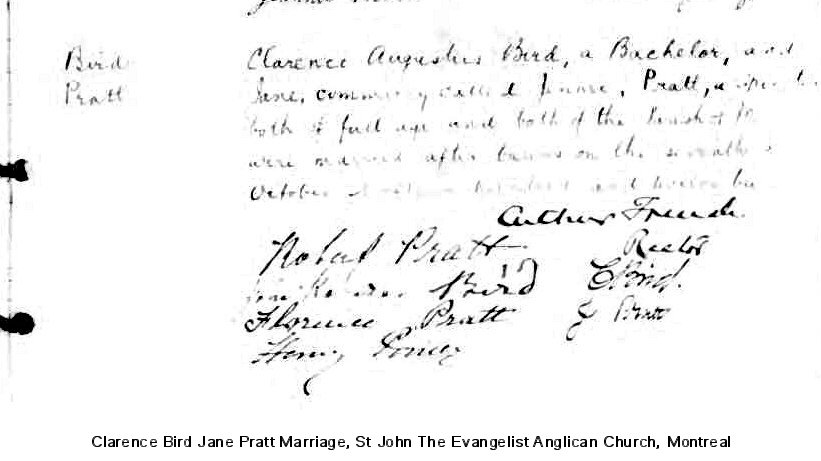 Bird
Pratt
Clarence Augustus Bird, a Bachelor, and
Jane, commonly called Jennie, Pratt, a
both of full age and both of the Parish of
were married after banns on the seventh
October and twelve by
Arthur French.
Rector
Robert Pratt
Bird
C Bird.
Florence Pratt
J Pratt
Henry
Clarence Bird Jane Pratt Marriage, St John The Evangelist Anglican Church, Montreal